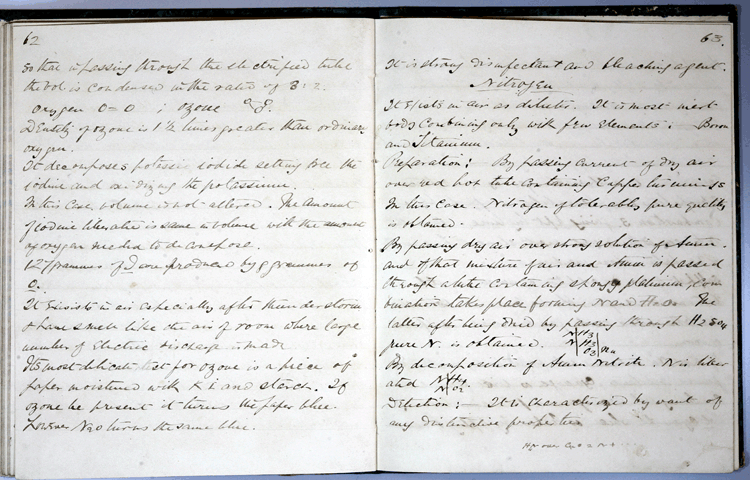 62
so that in passing through the electrified tube
the vol. is condensed in the rated of 3:2.
oxygen O=O ; ozone
Density of ozone is 1½ times greater than ordinary
oxygen.
It decomposes potassic iodide setting free the
iodine and oxidizing the potassium.
In this case volume is not altered. The amount
of iodine liberated is same in volume with the amount
of oxygen needed to decompose.
127 grammes of I are produced by 8 grammes of
O.
It exists in air especially after thunder storm
& have smell like the air of room where large
number of Electric discharge is made.
Its most delicate test for ozone is a piece of
paper moistened with K I and starch. If
ozone be present it turns the paper blue.
However N2O turns the same blue.
63.
It is strong disinfectant and bleaching agent.
Nitrogen
It exists in air as deluter. It is most inert
body combining only with few elements: Boron
and Titanium.
Preparation: By passing current of dry air
over red hot tube containing Copper
In this case Nitrogen of tolerably pure quality
is obtained.
By passing dry air over strong solution of Amm.
and if that mixture of air and Amm is passed
through a tube containing spongy platinum, com
bination takes place forming N and H2O. The
latter after being dried by passing through H2SO4
pure N. is obtained. NH3 NH3 O3
By decomposition of Amm Nitrite. N is liber
ated
Detection: - It is characterized by want of
any distinctive properties